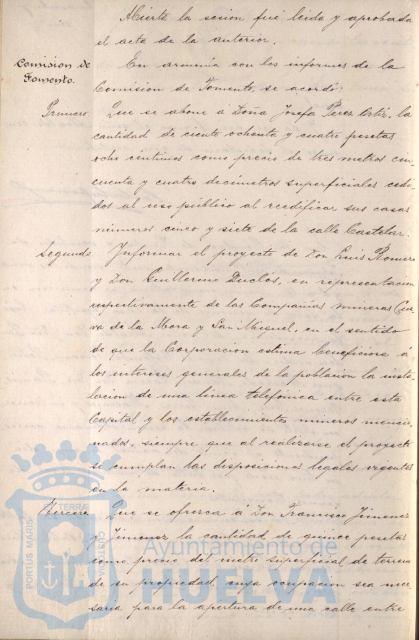 Abierta la sesion fué leida y aprobada
el acta de la anterior.
Comision de
Fomento.
En armonía con los informes de la
Comision de Fomento, se acordó:
Primero
Que se abone á Doña Josefa Perez Ortiz, la
cantidad de ciento ochenta y cuatro pesetas
ocho céntimos como precio de tres metros cin-
cuenta y cuatro decímetros superficiales cedi-
dos al uso público al reedificar sus casas
números cinco y siete de la calle Castelar.
Segundo
Informar el proyecto de Don Luis Romero
y Don Guillermo Duclós, en representacion
respectivamente de las Compañías mineras Cue-
va de la Mora y San Miguel, en el sentido
de que la Corporacion estima beneficiosa á
los intereses generales de la poblacion la insta-
lacion de una línea telefónica entre esta
Capital y los establecimientos mineros mencio-
nados, siempre que al realizarse el proyecto
se cumplan las disposiciones legales vigentes
en la materia.
Tercero
Que se ofrezca á Don Francisco Jimenez
y Jimenez la cantidad de quince pesetas
como precio del metro superficial de terreno
de su propiedad cuya ocupacion sea nece-
saria para la apertura de una calle entre
PORTUS MARIS
ET TERRAE
CUSTODIA
Ayuntamiento de
HUELVA